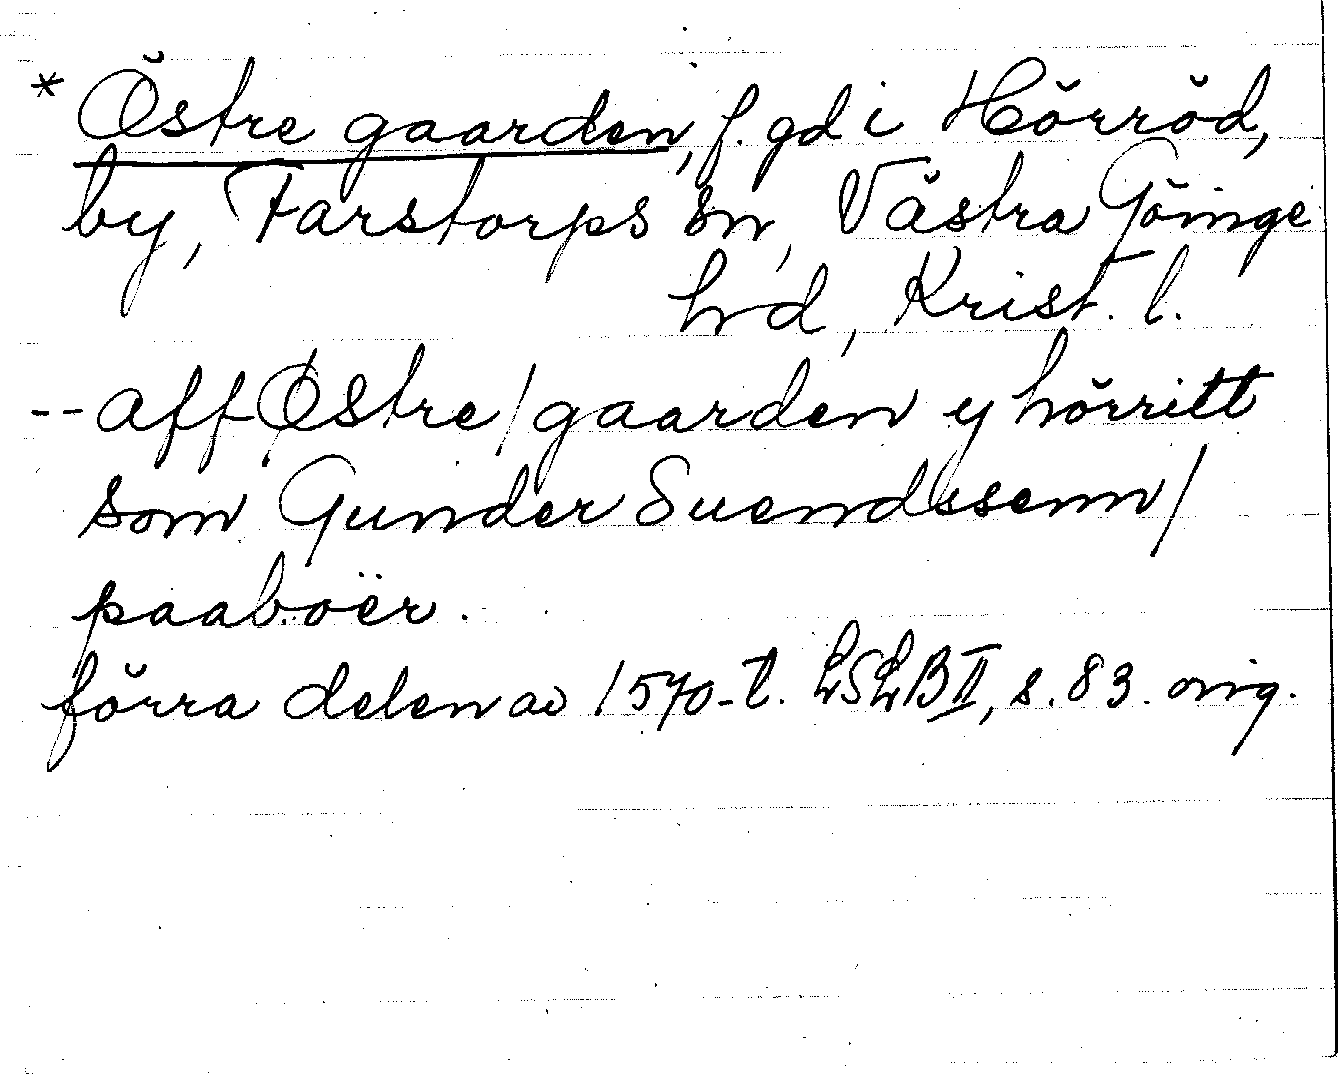 * Östre gaarden, f. gd i Hörröd,
by, Farstorps sn, Västra Göinge
hd, Krist. l.
-- aff Østre/gaarden y hörritt
som Gunder Suendssenn/
paaboër.
förra delen av 1570-t. LSLB II, s. 83. orig.